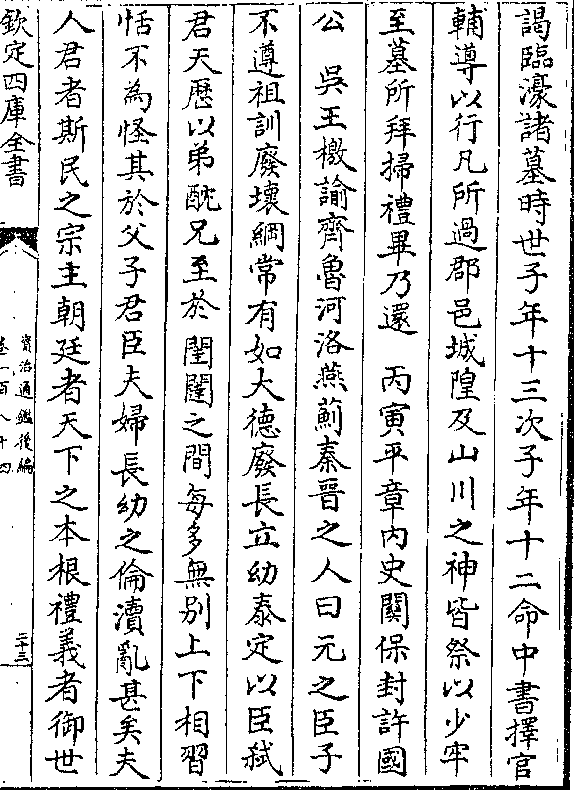 謁臨濠諸墓時世子年十三次子年十二命中書擇官
輔導以行凡所過郡邑城隍及山川之神皆祭以少牢
至墓所拜掃禮畢乃還　丙寅平章內史關保封許國
公　吳王檄諭齊魯河洛燕薊秦晉之人曰元之臣子
不遵祖訓廢壞綱常有如大德廢長立幼泰定以臣弒
君天厯以弟酖兄至於閨闥之間每多無別上下相習
恬不為怪其於父子君臣夫婦長幼之倫瀆亂甚矣夫
人君者斯民之宗主朝廷者天下之本根禮義者御世
欽定四庫全書
資治通鑑後編
卷一百八十四
二十三